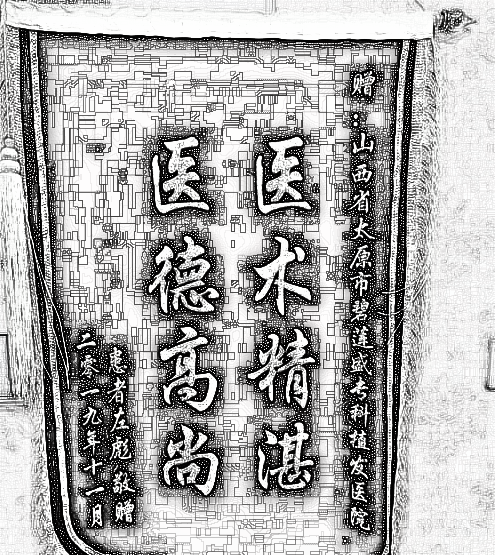 赠：山西省太原市碧莲盛专科植发医院
医术精湛
医德高尚
患者左彪 敬赠
二零一九年十一月